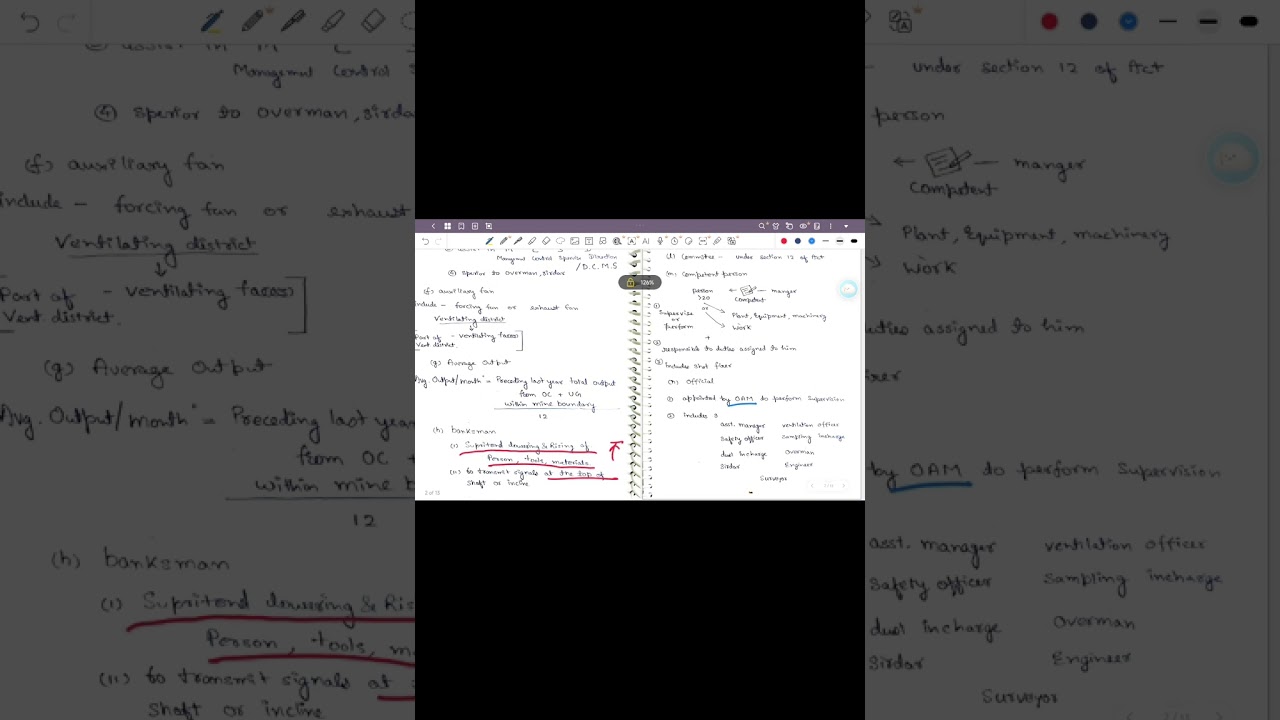 126%
④ sperior to overman, sirdar
Management Control Spervior Direction
/D.C.M.S
(f) auxiliary fan
include - forcing fan or exhaust fan
Ventilating district
Part of - ventilating faces)
Vent. district.
(g) Average Output
Avg. Output/month = Preceding last year total output
from OC + UG
within mine boundary
12
(h) banksman
(i) Supritend lowering & Rising of
Person, tools, materials
(ii) to transmit signals at the top of
Shaft or incline
(l) Committe - under section 12 of Act
(m) Competent person
person
>20
manger
Competent
① Supervise
or
perform
or
Plant, Equipment, machinery
Work
+
② responsible to duties assigned to him
③ includes shot firer
(n) Official
① appointed by OAM to perform Supervision
② includes 3
asst. manager ventilation officer
Safety officer Sampling incharge
dust incharge Overman
Sirdar Engineer
Surveyor